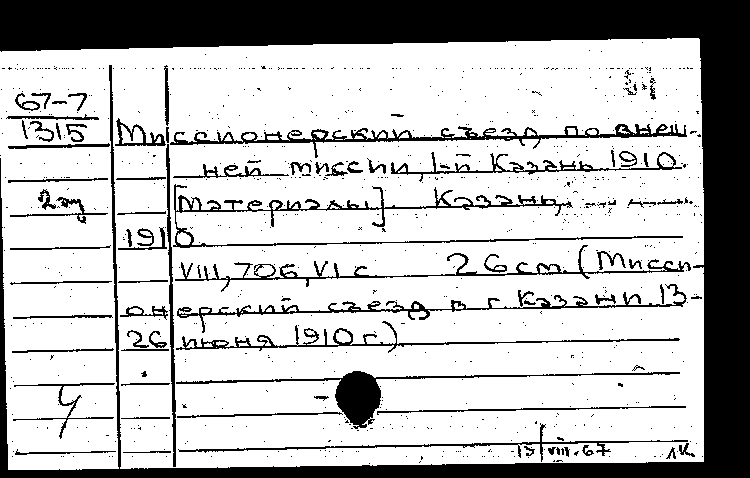 67-7
1315
Миссионерский съезд по внеш-
ней миссии, 1-й Казань 1910.
2 эк
[Материалы]. Казань,
1910.
VIII, 706, VI с 26 cm. (Мисси-
онерский съезд в г. Казани. 13-
26 июня 1910 г.)
Ч
13/VIII.67